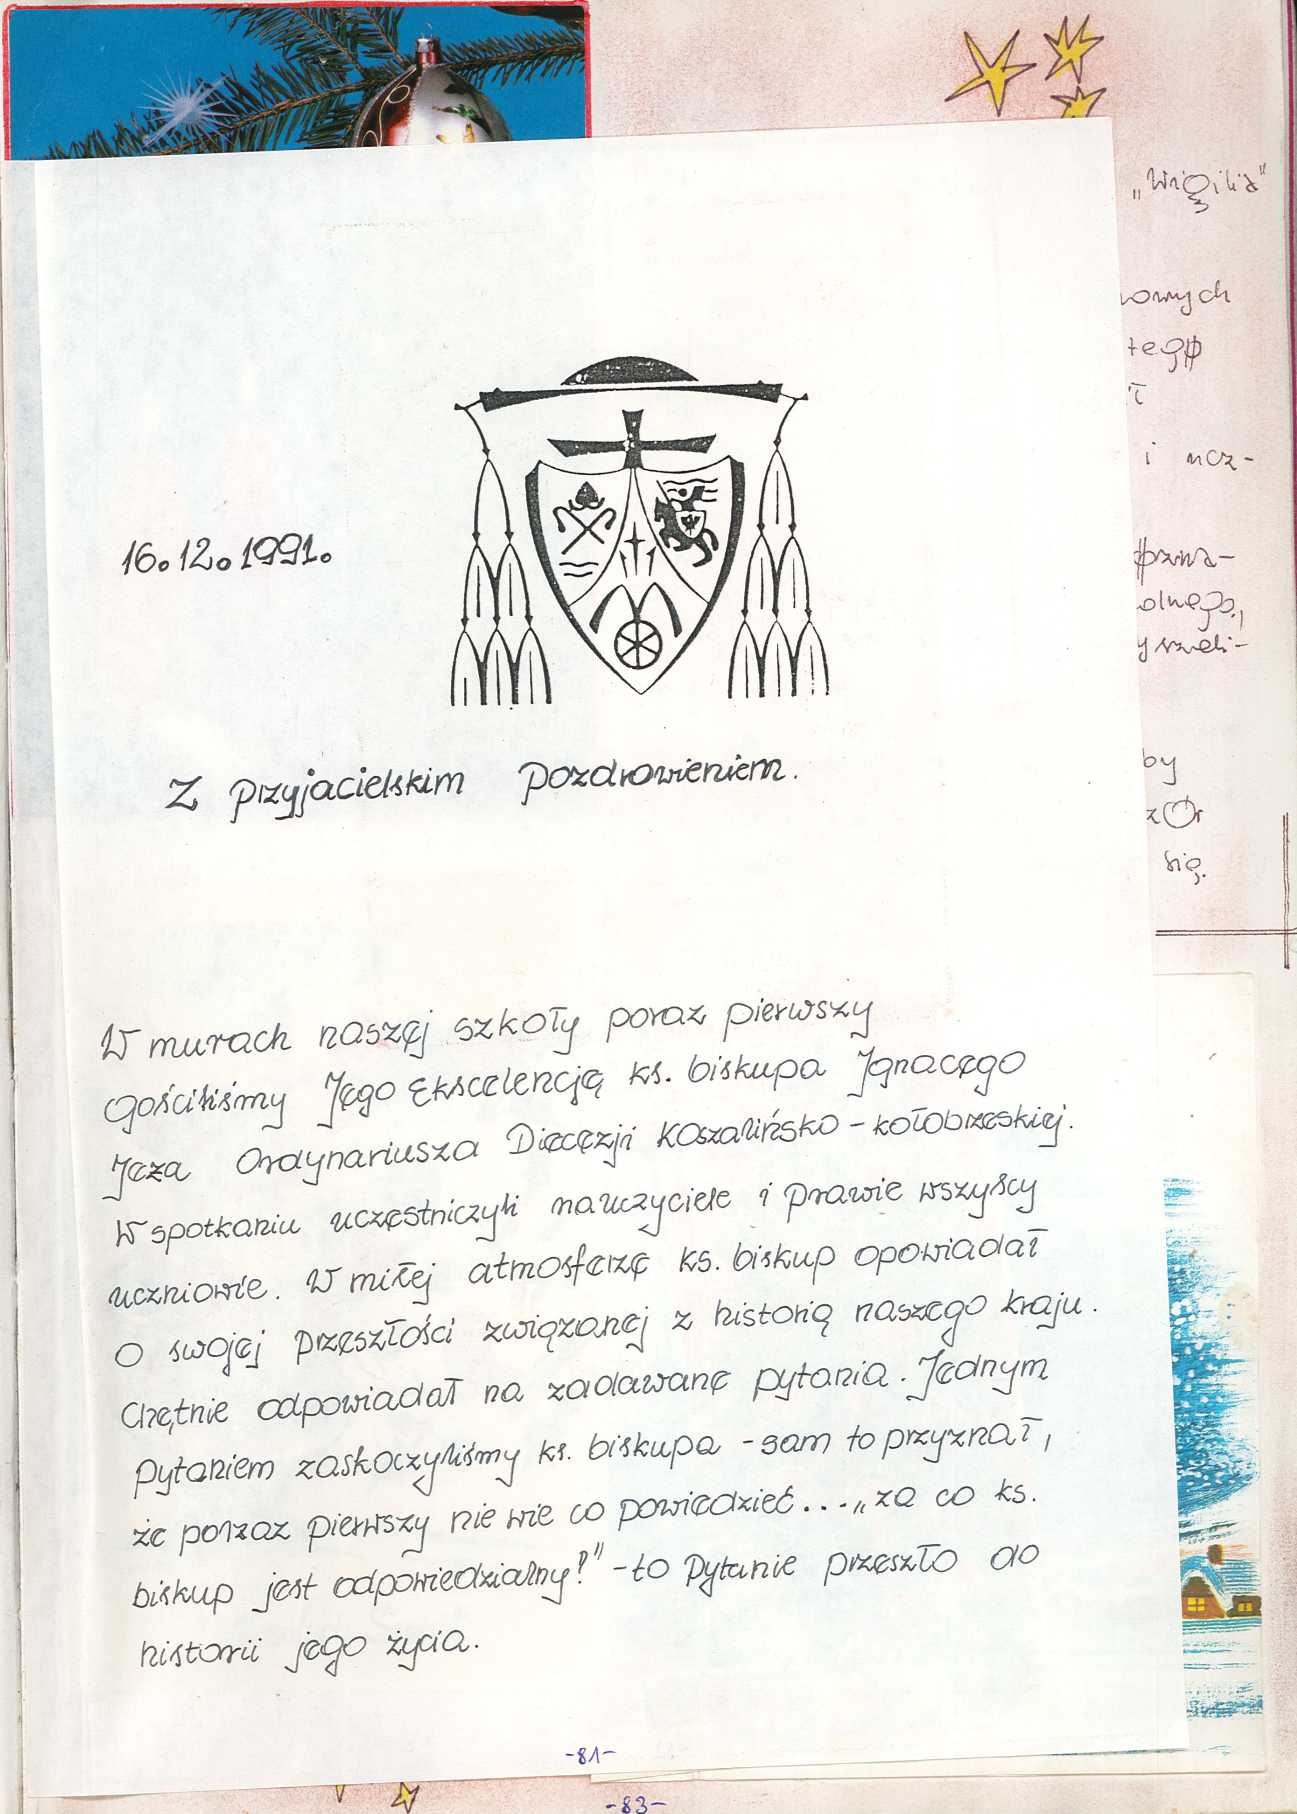 „Wigilia"
16.12.1991.
Z przyjacielskim pozdrowieniem.
W murach naszej szkoły poraz pierwszy
gościliśmy Jego Ekscelencję ks. biskupa Ignacego
Jeża Ordynariusza Diecezji Koszalińsko-kołobrzeskiej.
W spotkaniu uczestniczyli nauczyciele i prawie wszyscy
uczniowie. W miłej atmosferze ks. biskup opowiadał
o swojej przeszłości związanej z historią naszego kraju.
Chętnie odpowiadał na zadawane pytania. Jednym
pytaniem zaskoczyliśmy ks. biskupa - sam to przyznał,
że poraz pierwszy nie wie co powiedzieć... „za co ks.
biskup jest odpowiedzialny?" - to pytanie przeszło do
historii jego życia.
owych
tego
i ucz-
olnego,
by
zór
się.
-81-
-83-